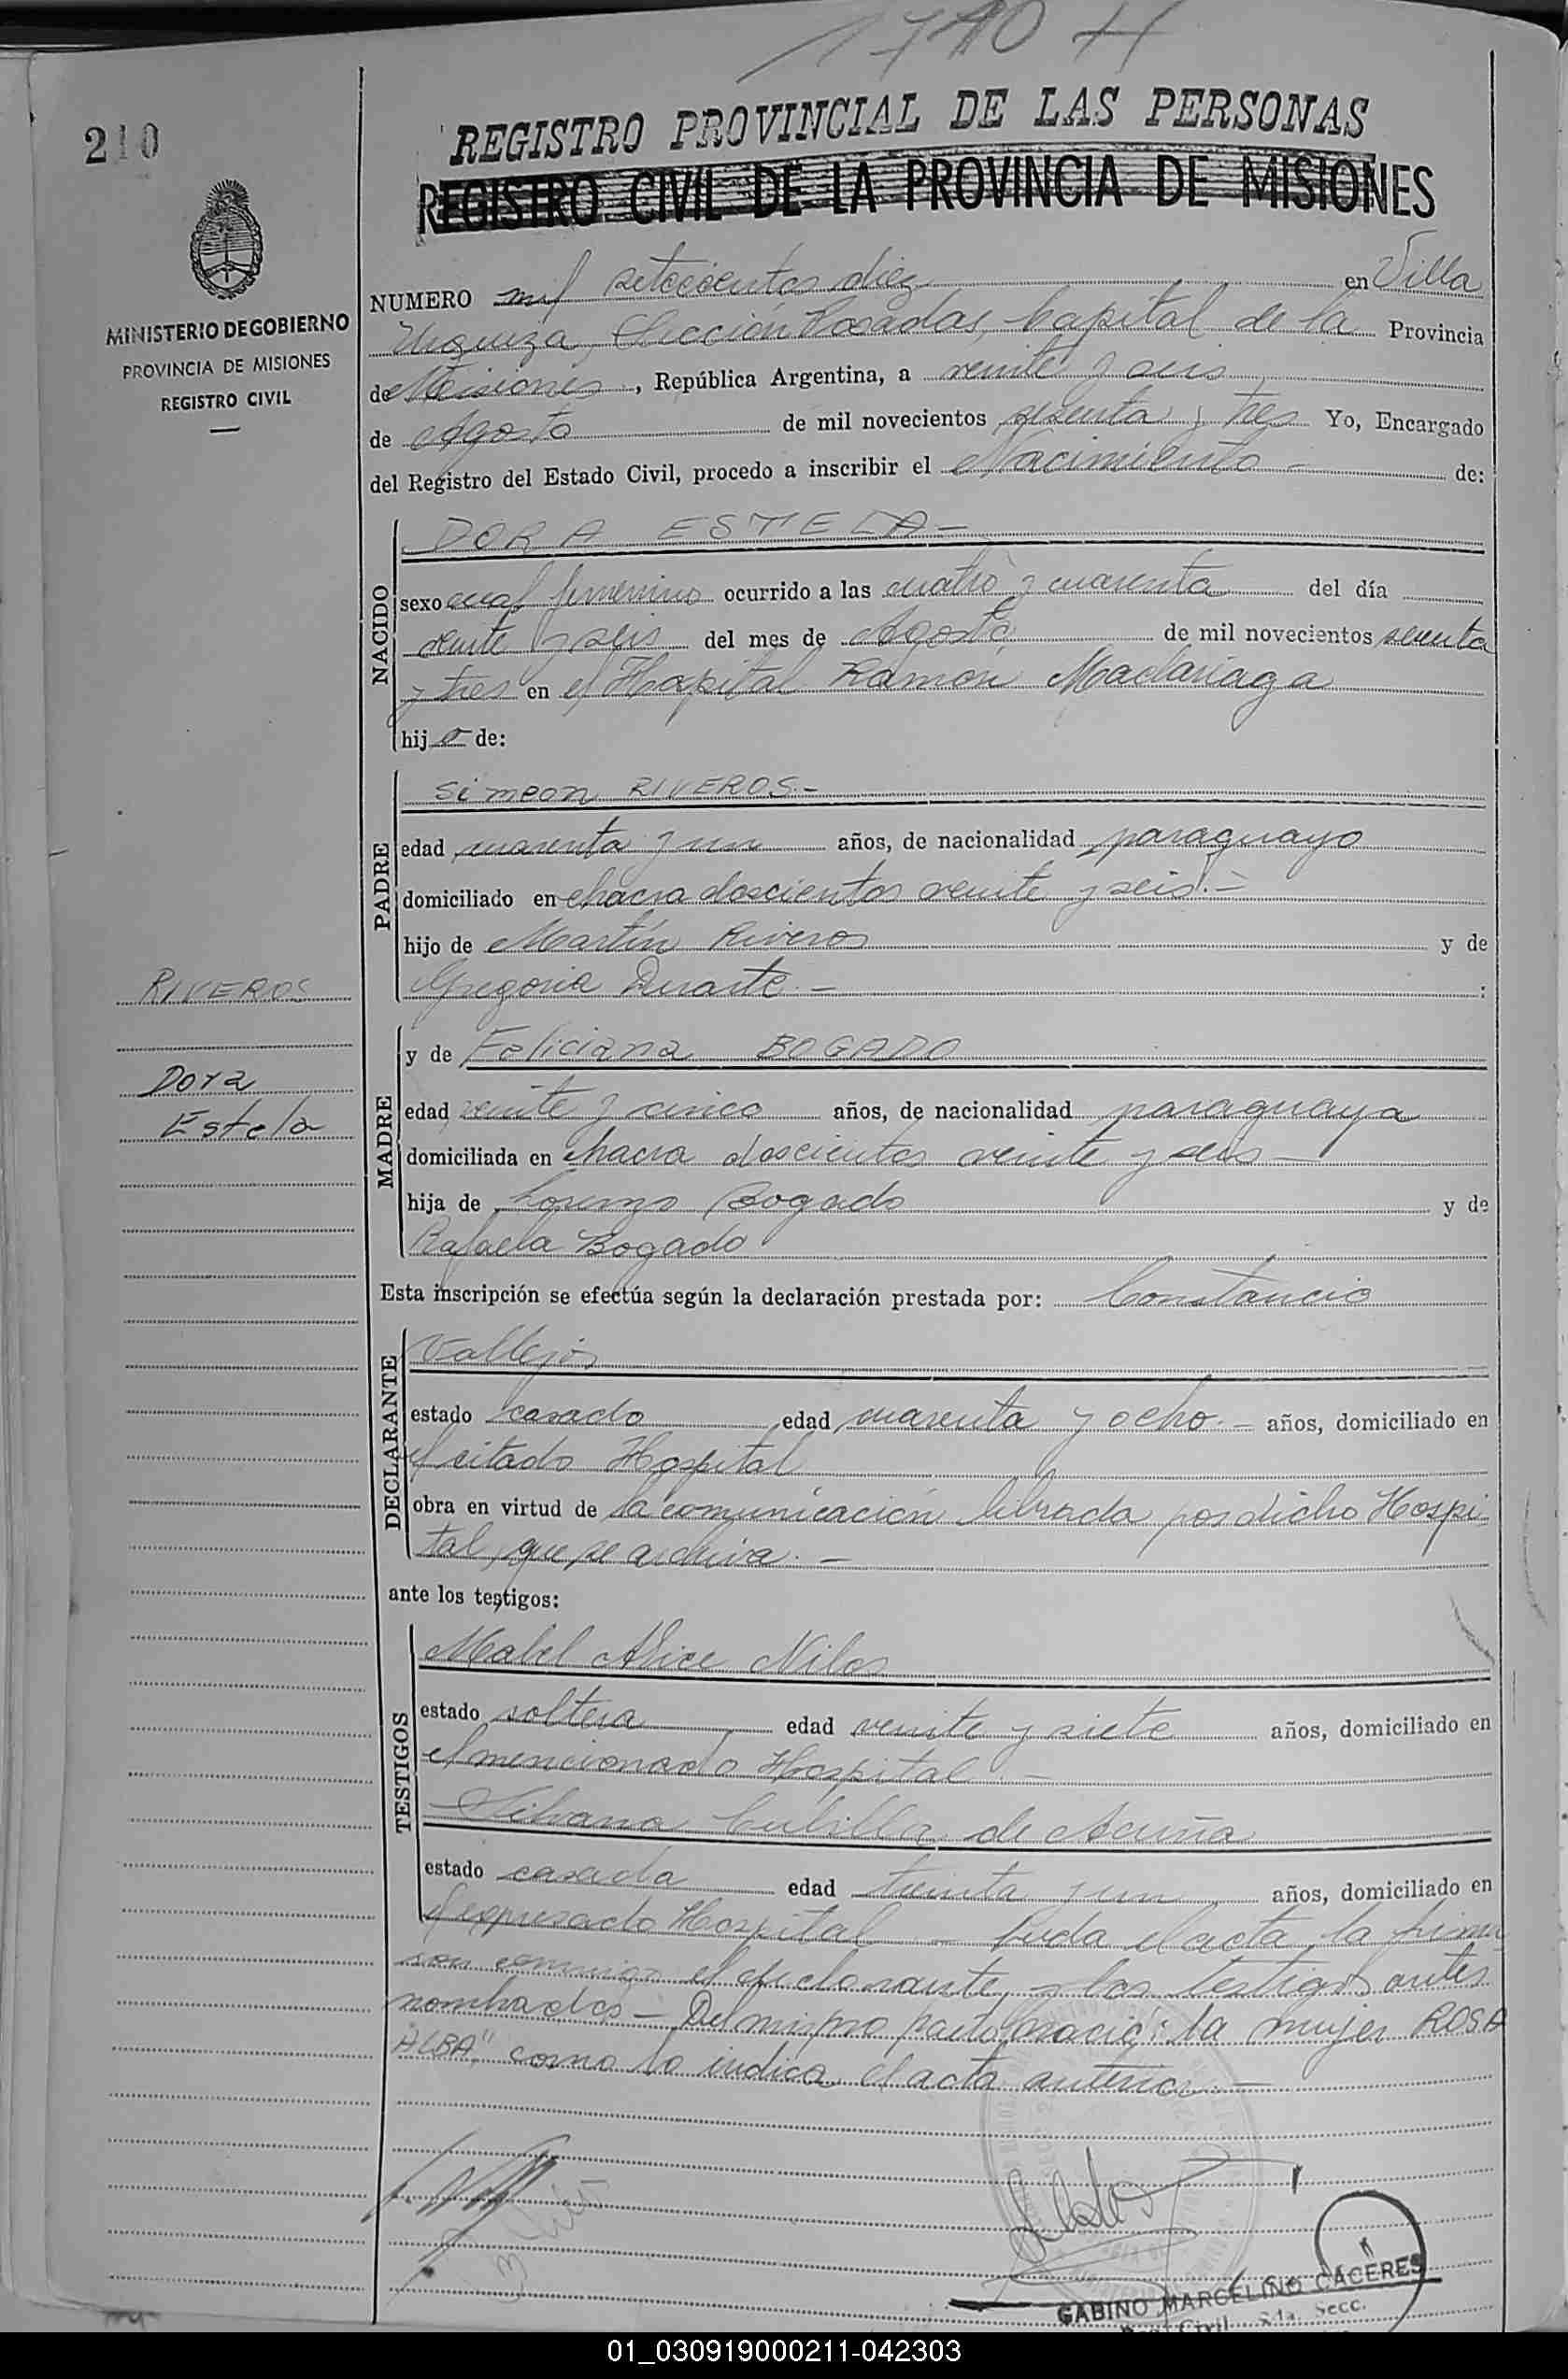 1710 H
210
REGISTRO PROVINCIAL DE LAS PERSONAS
REGISTRO CIVIL DE LA PROVINCIA DE MISIONES
MINISTERIO DE GOBIERNO
PROVINCIA DE MISIONES
REGISTRO CIVIL
NUMERO mil setecientos diez en Villa
Urquiza, Sección Posadas, Capital de la Provincia
de Misiones, República Argentina, a veinte y seis
de Agosto de mil novecientos sesenta y tres Yo, Encargado
del Registro del Estado Civil, procedo a inscribir el Nacimiento - de:
NACIDO
DORA ESTELA-
sexo femenino ocurrido a las cuatro y cuarenta del día
veinte y seis del mes de Agosto de mil novecientos sesenta
y tres en el Hospital Ramon Madariaga
hij a de:
PADRE
Simeon RIVEROS.-
edad cuarenta y un años, de nacionalidad paraguayo
domiciliado en chacra doscientos veinte y seis.-
hijo de Martín Riveros y de
Gregoria Duarte.- :
RIVEROS
Dora
Estela
MADRE
y de Feliciana BOGADO
edad veinte y cinco años, de nacionalidad paraguaya
domiciliada en chacra doscientos veinte y seis-
hija de Lorenzo Bogado y de
Rafaela Bogado
Esta inscripción se efectúa según la declaración prestada por: Constancio
DECLARANTE
Vallejos
estado casado edad cuarenta y ocho.- años, domiciliado en
el citado Hospital
obra en virtud de la comunicación librada por dicho Hospi-
tal, que se archiva.-
ante los testigos:
TESTIGOS
Mabel Alice Nilos
estado soltera edad veinte y siete años, domiciliado en
el mencionado Hospital.-
Silvana Cubilla de Acuña
estado casada edad treinta y un años, domiciliado en
el expresado Hospital.- Leida el acta, la firma
son conmigo el declarante y los testigos antes
nombrados- Del mismo parto nació: la mujer ROSA
ALBA" como lo indica el acta anterior.-
GABINO MARCELINO CACERES
Civil Secc.
01_030919000211-042303